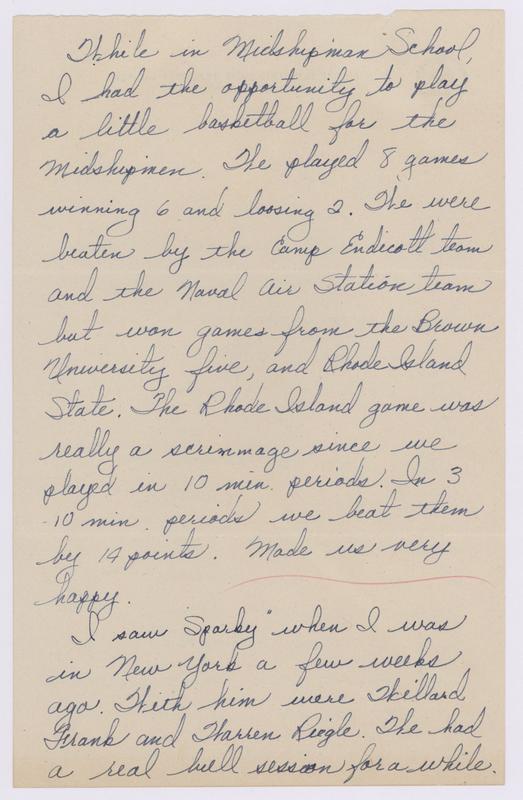 While in Midshipman School,
I had the opportunity to play
a little basketball for the
Midshipmen. We played 8 games
winning 6 and loosing 2. We were
beaten by the Camp Endicott team
and the Naval Air Station team
but won games from the Brown
University five, and Rhode Island
State. The Rhode Island game was
really a scrimmage since we
played in 10 min. periods. In 3
10 min. periods we beat them
by 14 points. Made us very
happy.
I saw "Sparky" when I was
in New York a few weeks
ago. With him were Willard
Frank and Warren Riegle. We had
a real bull session for a while.